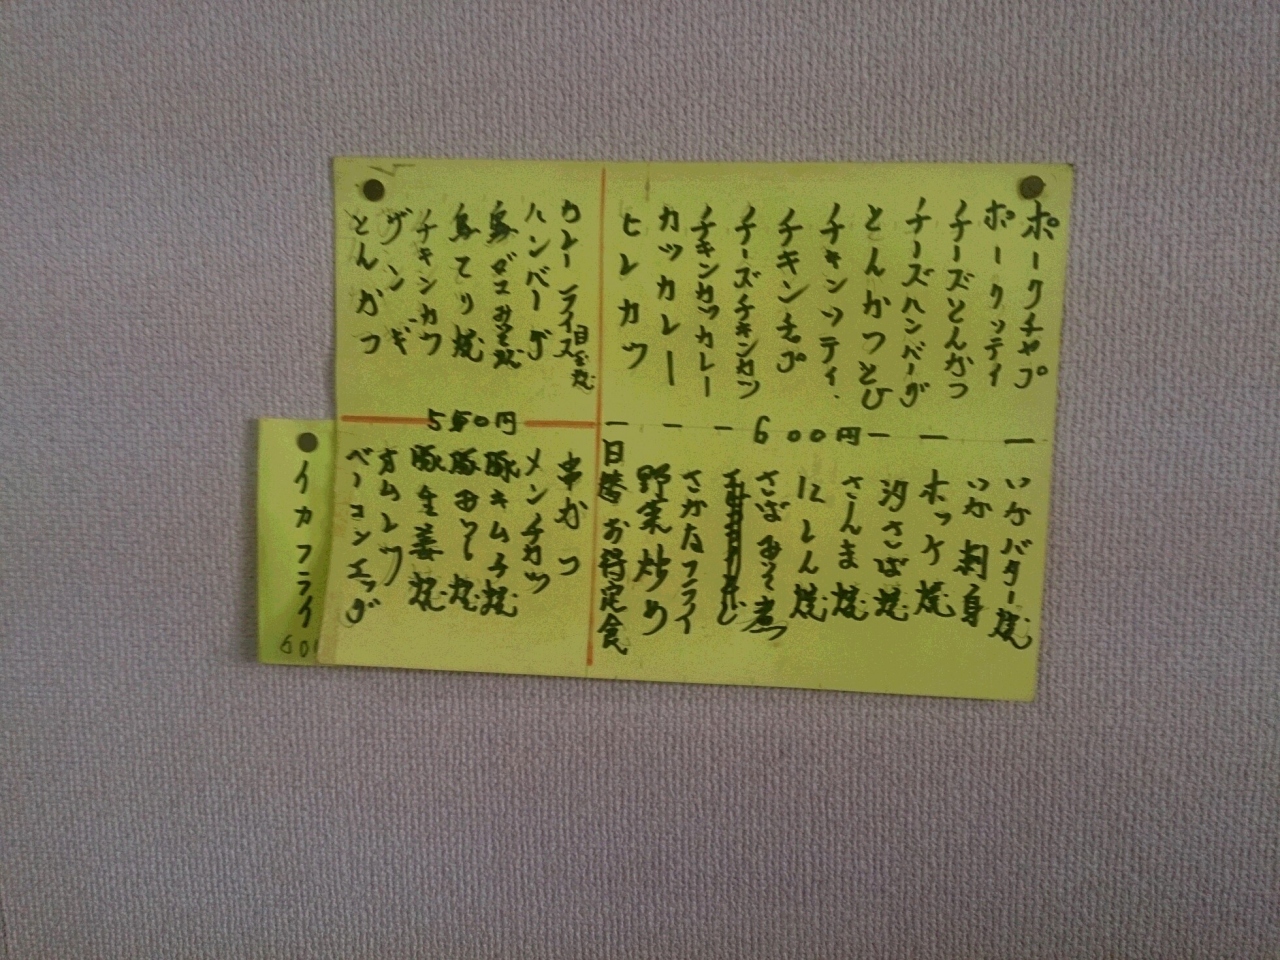 ポークチャプ
ポークソテイ
チーズとんかつ
チーズハンバーグ
とんかつとじ
チキンソティ
チキンチャプ
チーズチキンカツ
チキンカツカレー
カツカレー
ヒレカツ
600円
いかバター焼
いか刺身
ホッケ焼
さば焼
さんま焼
にしん焼
さばみそ煮
さかなフライ
野菜炒め
日替お得定食
カレーライス
目玉焼
ハンバーグ
みそ焼
鳥てり焼
チキンカツ
ザンギ
とんかつ
550円
串かつ
メンチカツ
豚キムチ焼
豚みそ焼
豚生姜焼
オムレツ
ベーコンエッグ
イカフライ
600